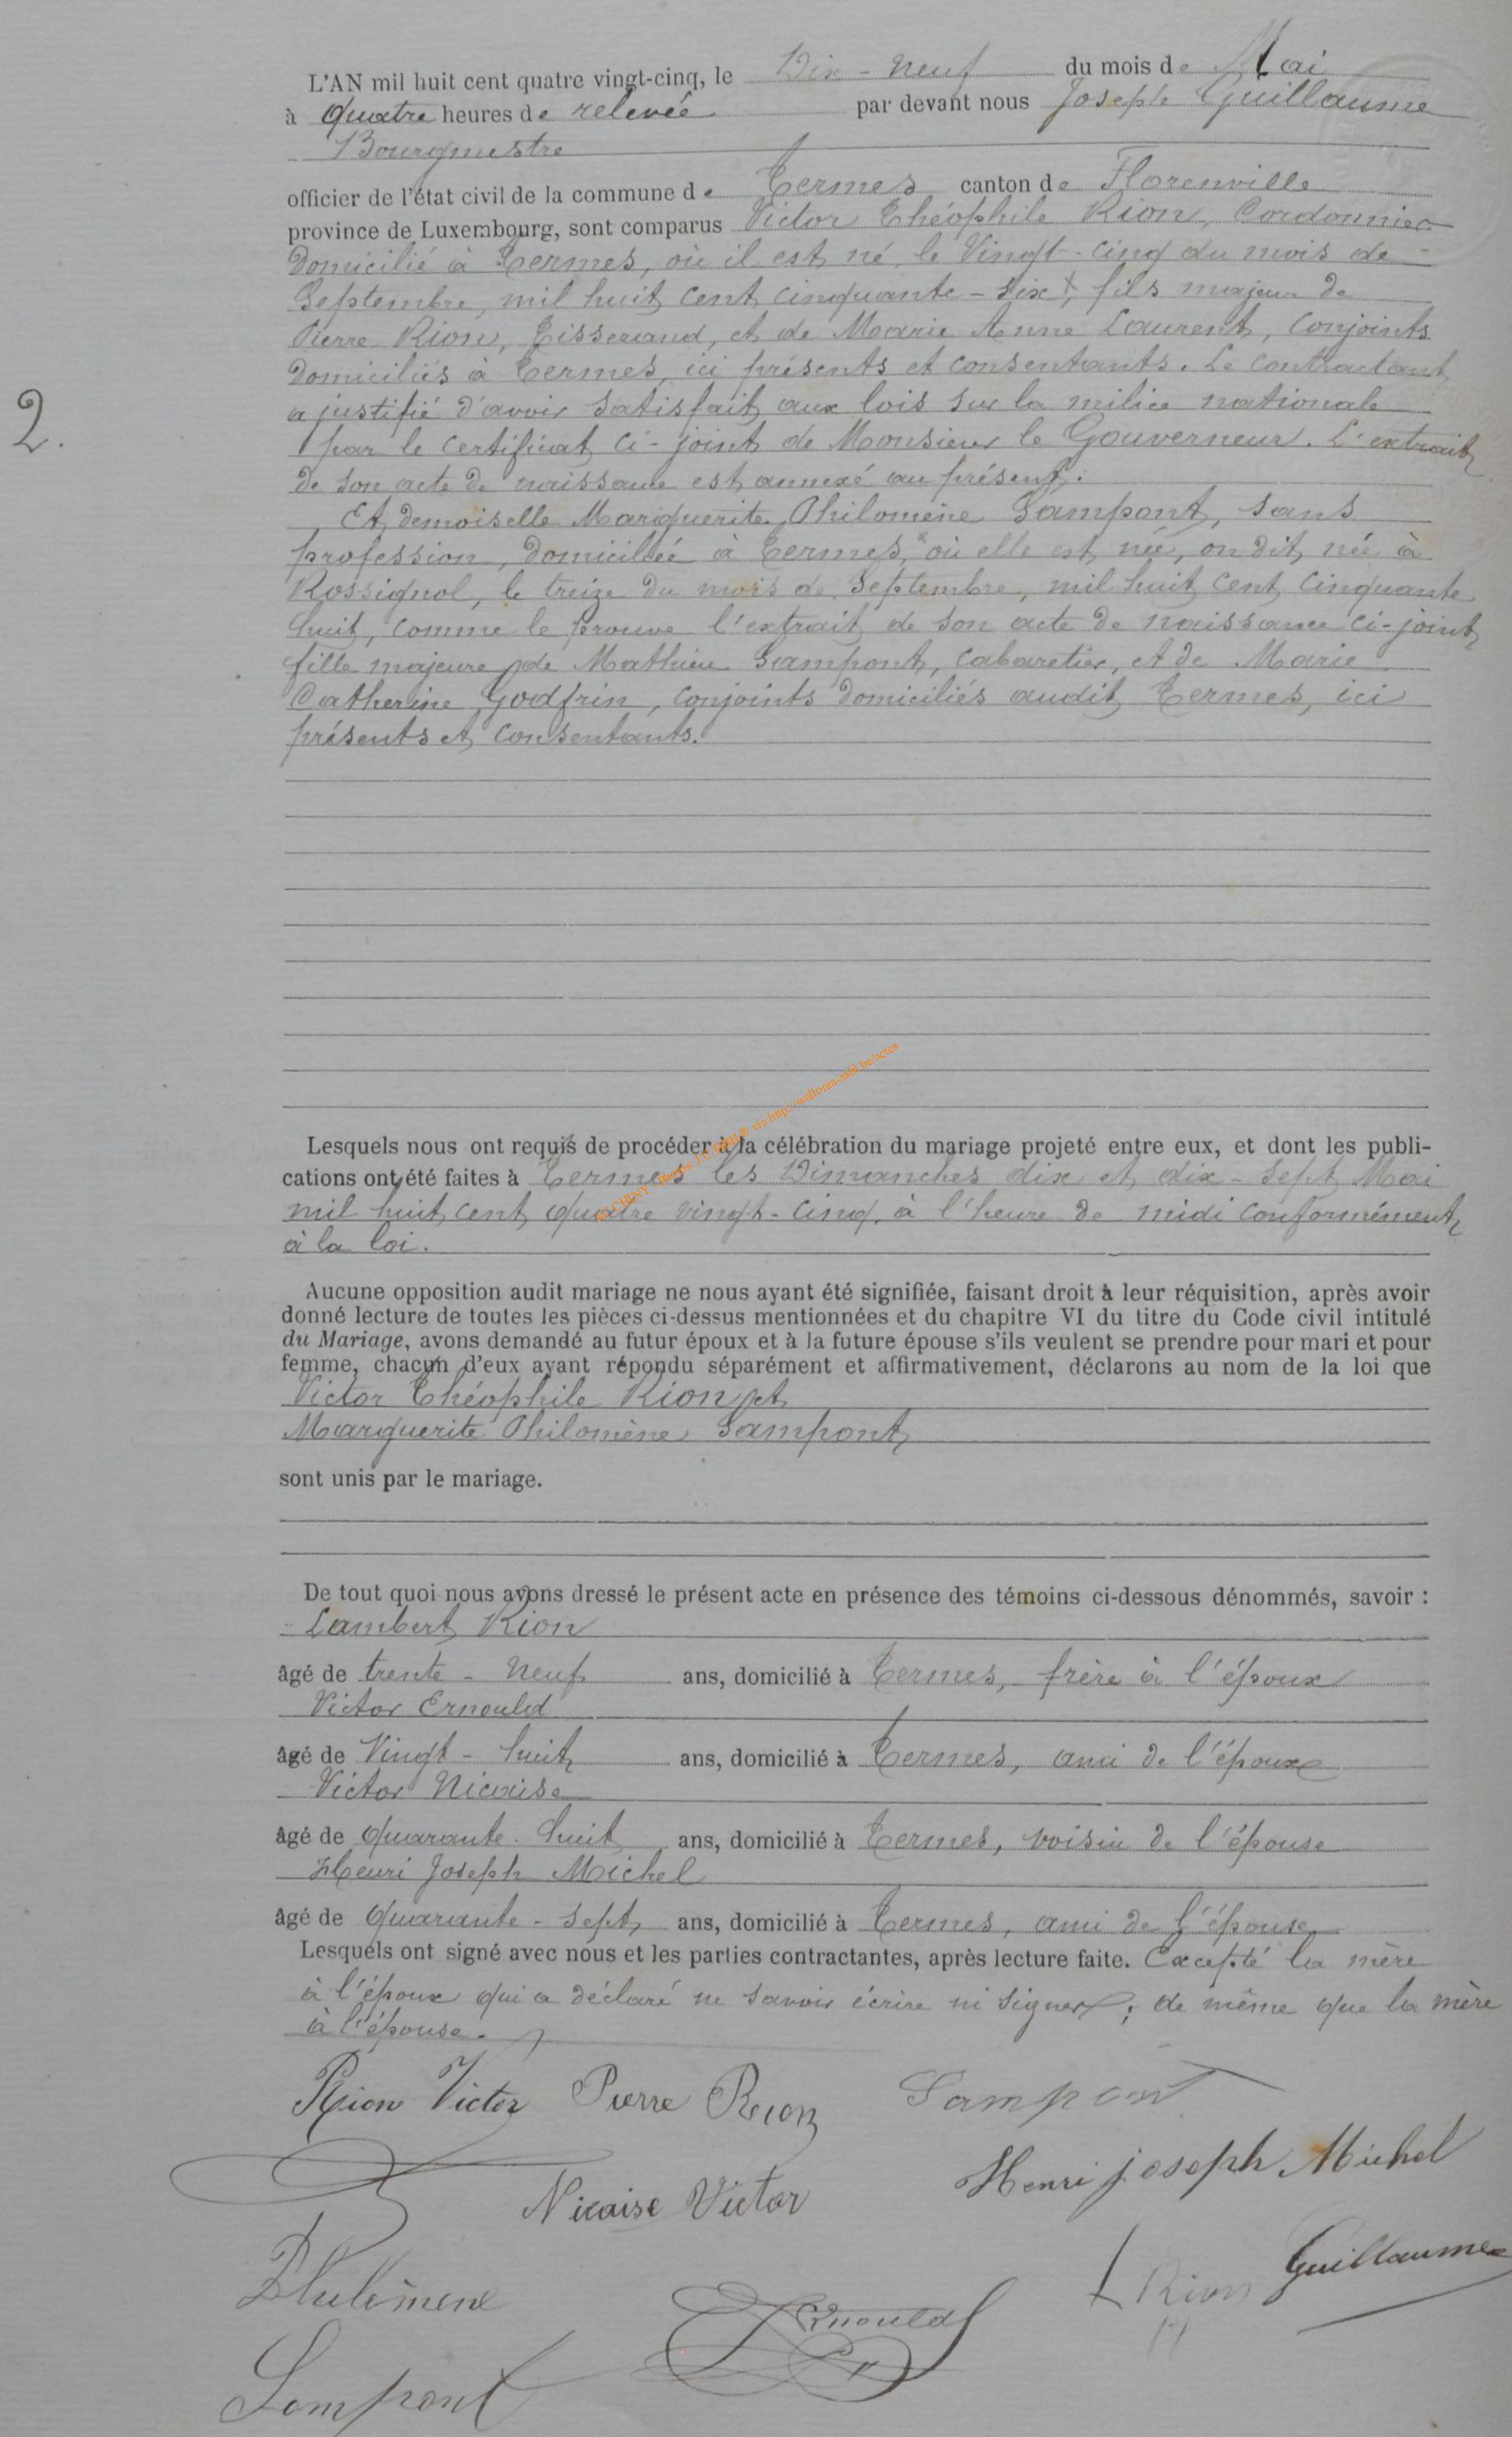 L'AN mil huit cent quatre vingt-cinq, le Dix-Neuf du mois de Mai
à quatre heures de relevée par devant nous Joseph Guillaume
Bourgmestre
officier de l'état civil de la commune de Termes canton de Florenville
province de Luxembourg, sont comparus Victor Théophile Rion, Cordonnier
Domicilié à Termes, où il est né, le Vingt-cinq du mois de
Septembre, mil huit cent cinquante-six, fils majeur de
Pierre Rion, Tisserand, et de Marie Anne Laurent, conjoints
Domiciliés à Termes, ici présents et consentants. Le contractant
2. a justifié d'avoir satisfait aux lois sur la milice nationale
par le certificat ci-joint de Monsieur le Gouverneur. L'extrait
de son acte de naissance est annexé au présent.
Et demoiselle Marguerite Philomène Sampont, sans
profession, Domiciliée à Termes, où elle est née, on dit, née à
Rossignol, le treize du mois de Septembre, mil huit cent cinquante
huit, comme le prouve l'extrait de son acte de naissance ci-joint
fille majeure de Mathieu Sampont, cabaretier, et de Marie
Catherine Godfrin, conjoints domiciliés audit Termes, ici
présents et consentants.
Lesquels nous ont requis de procéder à la célébration du mariage projeté entre eux, et dont les publi-
cations ont été faites à Termes les Dimanches dix et dix-sept Mai
mil huit cent quatre vingt-cinq, à l'heure de midi conformément
à la loi.
Aucune opposition audit mariage ne nous ayant été signifiée, faisant droit à leur réquisition, après avoir
donné lecture de toutes les pièces ci-dessus mentionnées et du chapitre VI du titre du Code civil intitulé
du Mariage, avons demandé au futur époux et à la future épouse s'ils veulent se prendre pour mari et pour
femme, chacun d'eux ayant répondu séparément et affirmativement, déclarons au nom de la loi que
Victor Théophile Rion et
Marguerite Philomène Sampont
sont unis par le mariage.
De tout quoi nous avons dressé le présent acte en présence des témoins ci-dessous dénommés, savoir :
Lambert Rion
âgé de trente-neuf ans, domicilié à Termes, frère à l'époux
Victor Ernould
âgé de Vingt-huit ans, domicilié à Termes, ami de l'époux
Victor Nicaise
âgé de quarante-huit ans, domicilié à Termes, voisin de l'épouse
Henri Joseph Michel
âgé de quarante-sept ans, domicilié à Termes, ami de l'épouse
Lesquels ont signé avec nous et les parties contractantes, après lecture faite. Excepté la mère
à l'époux qui a déclaré ne savoir écrire ni signer; de même que la mère
à l'épouse.
Rion Victor Pierre Rion Sampont
Nicaise Victor Henri joseph Michel
Philomene Ernould L Rion Guillaume
Sampont